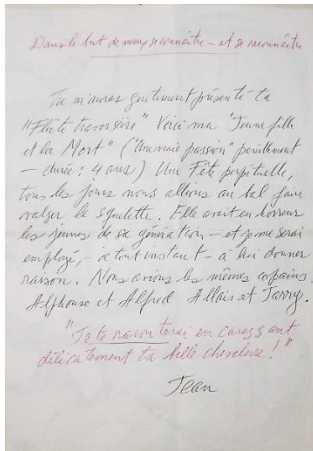 Dans le but de mieux se connaître – et se reconnaître
Tu m'auras gentiment présenté ta
"Flûte traversière" Voici ma "Jeune fille
et la Mort" ("Une vraie passion" pareillement
– durée : 4 ans) Une Fête perpétuelle,
tous les jours nous allions au bal faire
valser le squelette. Elle avait en horreur
les jeunes de sa génération – et je me serai
employé, – à tout instant – à lui donner
raison. Nous avions les mêmes copains.
Alphonse et Alfred Allais et Jarry.
"Je te raconterai en caressant
délicatement ta belle chevelure !"
Jean